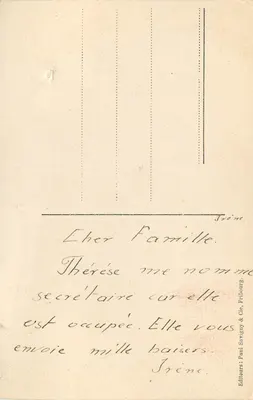 Irène
Cher Famille.
Thérése me nomme
secrétaire car elle
est occupée. Elle vous
envoie mille baisers.
Irène.
Editeurs: Paul Savigny & Cie, Fribourg.